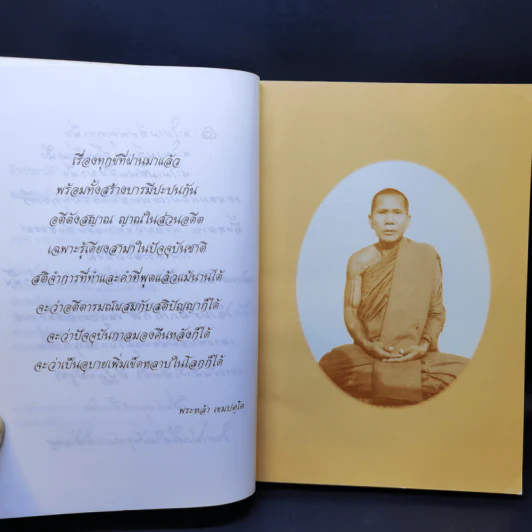 เรื่องทุกข์ที่ผ่านมาแล้ว
พร้อมทั้งสร้างบารมีปะปนกัน
อตีตังสญาณ ญาณในส่วนอดีต
เฉพาะรู้เดียงสามาในปัจจุบันชาติ
สติจำการที่ทำและคำที่พูดแล้วแม้นานได้
จะว่าอตีตารมณ์ผสมกับสติปัญญาก็ได้
จะว่าปัจจุบันกาลมองคืนหลังก็ได้
จะว่าเป็นอุบายเพิ่มเข็ดหลาบในโลกก็ได้
พระหล้า เขมปตฺโต